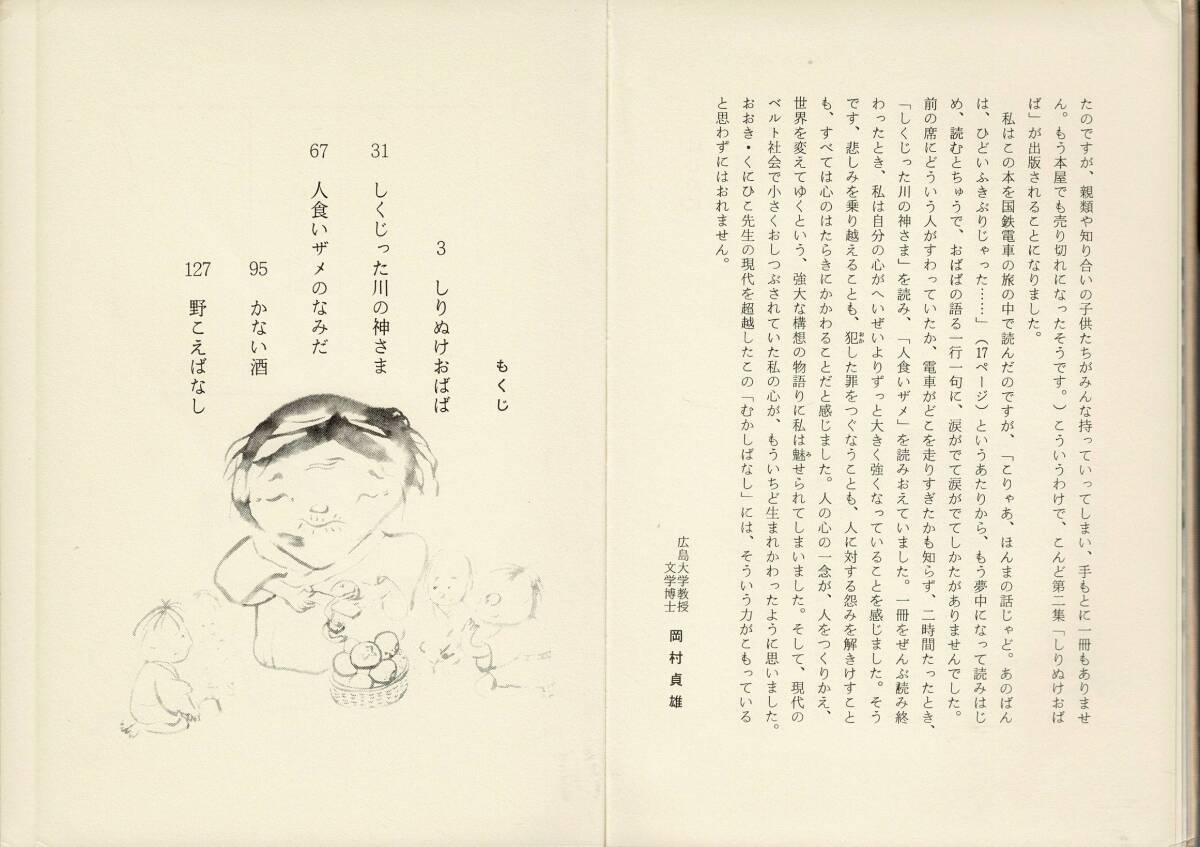 たのですが、親類や知り合いの子供たちがみんな持っていってしまい、手もとに一冊もありませ
ん。もう本屋でも売り切れになったそうです。）こういうわけで、こんど第二集「しりぬけおば
ば」が出版されることになりました。
私はこの本を国鉄電車の旅の中で読んだのですが、「こりゃあ、ほんまの話じゃど。あのばん
は、ひどいふきぶりじゃった……」（17ページ）というあたりから、もう夢中になって読みはじ
め、読むとちゅうで、おばばの語る一行一句に、涙がでて涙がでてしかたがありませんでした。
前の席にどういう人がすわっていたか、電車がどこを走りすぎたかも知らず、二時間たったとき、
「しくじった川の神さま」を読み、「人食いザメ」を読みおえていました。一冊をぜんぶ読み終
わったとき、私は自分の心がへいぜいよりずっと大きく強くなっていることを感じました。そう
です、悲しみを乗り越えることも、犯（おか）した罪をつぐなうことも、人に対する怨みを解きけすこと
も、すべては心のはたらきにかかわることだと感じました。人の心の一念が、人をつくりかえ、
世界を変えてゆくという、強大な構想の物語りに私は魅（み）せられてしまいました。そして、現代の
ベルト社会で小さくおしつぶされていた私の心が、もういちど生まれかわったように思いました。
おおき・くにひこ先生の現代を超越したこの「むかしばなし」には、そういう力がこもっている
と思わずにはおれません。
広島大学教授
文学博士
岡村貞雄
もくじ
3 しりぬけおばば
31 しくじった川の神さま
67 人食いザメのなみだ
95 かない酒
127 野こえばなし